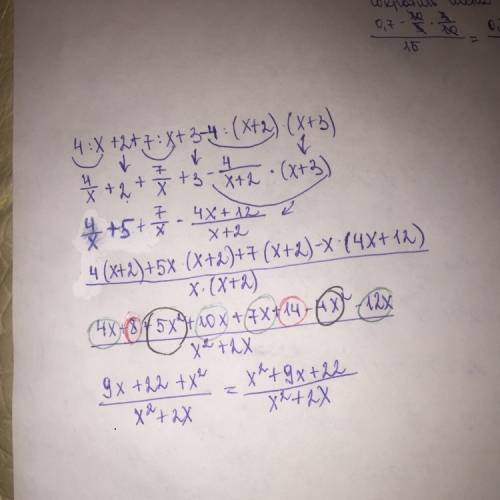 0,7 - 10/3 · 3/10
15 =
4:x + 2 + 7:x + 3 - 4:(x+2)·(x+3)
4/x + 2 + 7/x + 3 - 4/(x+2) · (x+3)
4/x + 5 + 7/x - (4x+12)/(x+2)
4(x+2)+5x(x+2)+7(x+2)-x·(4x+12)
x·(x+2)
4x+8+5x²+10x+7x+14-4x²-12x
x²+2x
(9x+22+x²)/(x²+2x) = (x²+9x+22)/(x²+2x)